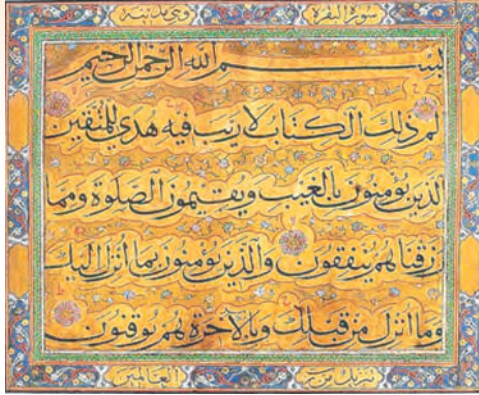 سورة البقرة وهي مدنية
بسم الله الرحمن الرحيم
الم ذلك الكتاب لا ريب فيه هدى للمتقين
الذين يؤمنون بالغيب ويقيمون الصلوة ومما
رزقناهم ينفقون والذين يؤمنون بما أنزل اليك
وما انزل من قبلك وبالآخرة هم يوقنون
تنزيل من رب العالمين